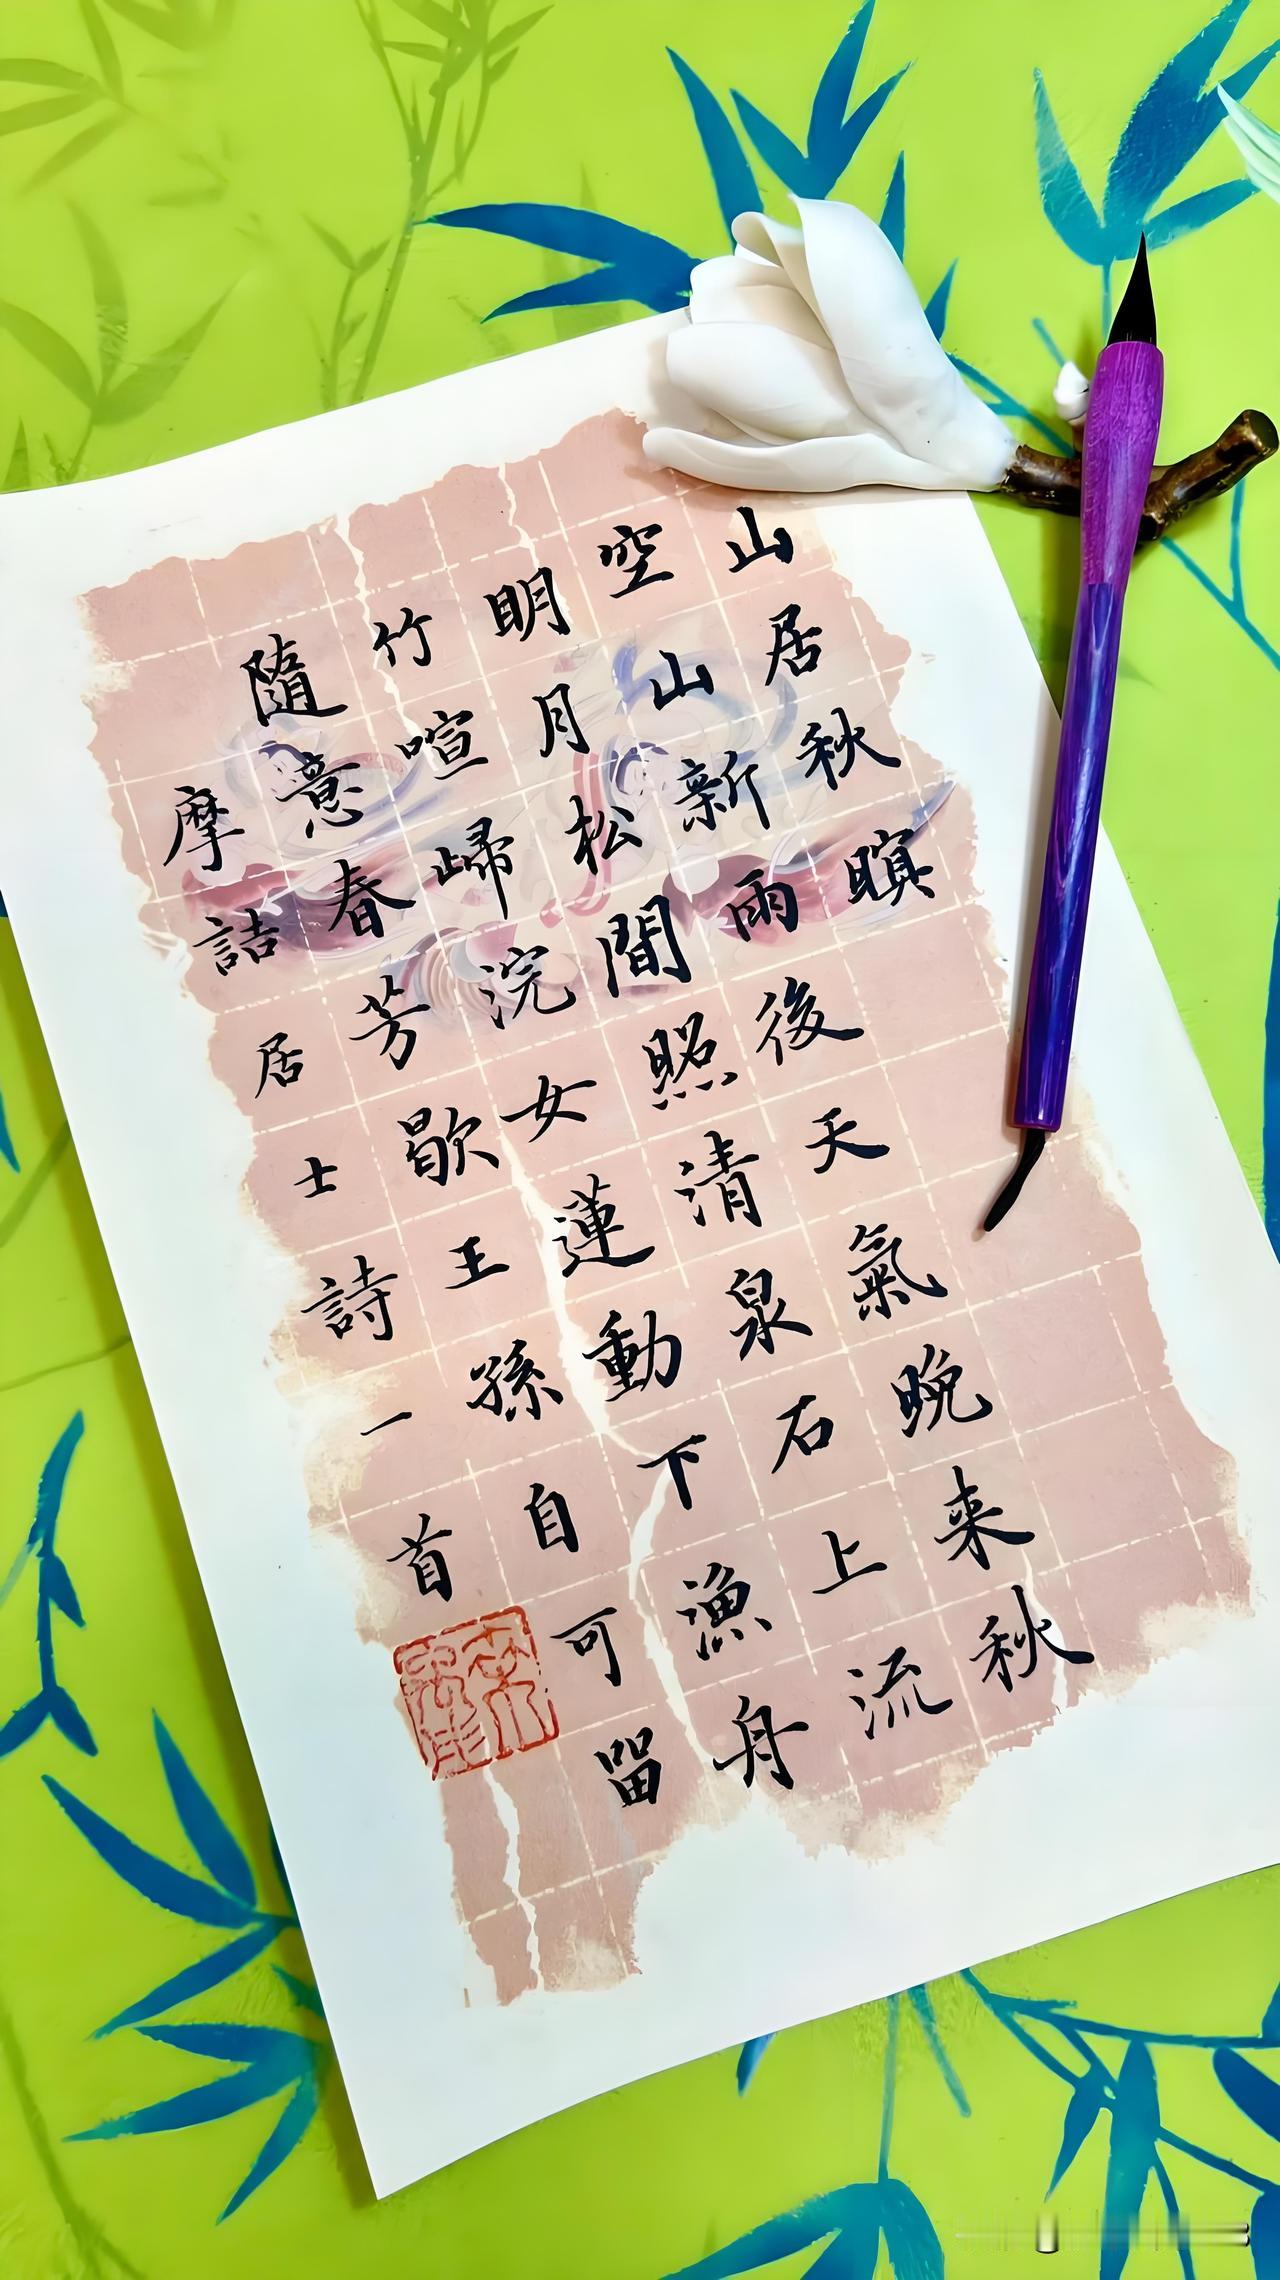 山居秋暝
空山新雨後天氣晚来秋
明月松間照清泉石上流
竹喧歸浣女蓮動下漁舟
隨意春芳歇王孫自可留
摩詰居士詩一首